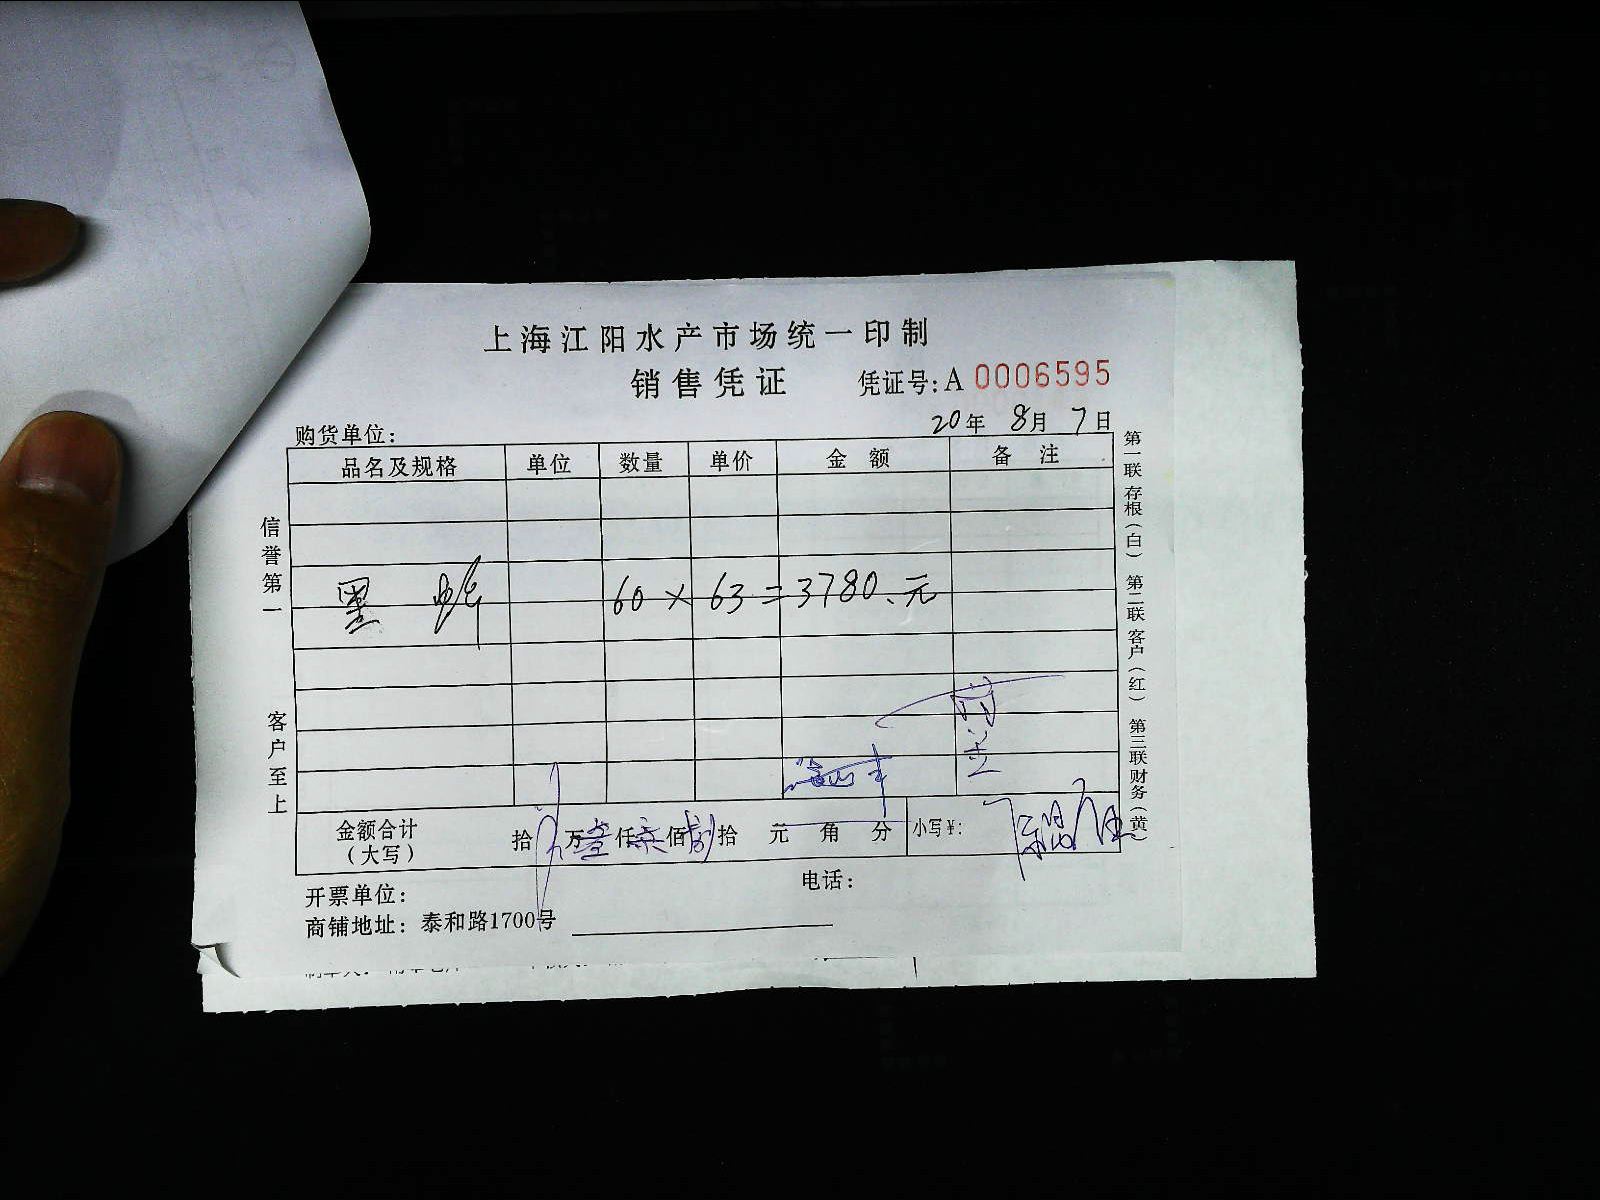 上海江阳水产市场统一印制
销售凭证 凭证号:A 0006595
20年 8月 7日
购货单位:
品名及规格 单位 数量 单价 金额 备注
黑 60 × 63 = 3780.元
金额合计(大写) 拾 万 仟 佰 拾 元 角 分 小写¥:
开票单位: 电话:
商铺地址: 泰和路1700号
信誉第一 客户至上
第一联存根(白) 第二联客户(红) 第三联财务(黄)